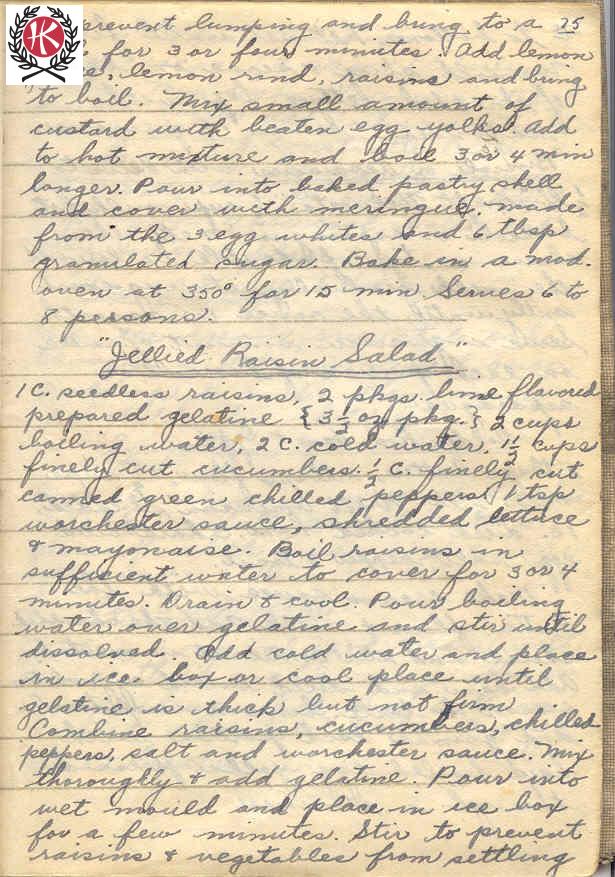 prevent lumping and bring to a 75
for 3 or four minutes. Add lemon
lemon rind, raisins and bring
to boil. Mix small amount of
custard with beaten egg yolks. Add
to hot mixture and boil 3 or 4 min
longer. Pour into baked pastry shell
and cover with meringue, made
from the 3 egg whites and 6 tbsp
granulated sugar. Bake in a mod.
oven at 350° for 15 min Serves 6 to
8 persons.
"Jellied Raisin Salad"
1 C. seedless raisins, 2 pkgs. lime flavored
prepared gelatine {3 1/2 oz pkg.} 2 cups
boiling water, 2 C. cold water, 1 1/2 cups
finely cut cucumbers. 1/2 C. finely cut
canned green chilled peppers, 1 tsp
worchester sauce, shredded lettuce
& mayonaise. Boil raisins in
sufficient water to cover for 3 or 4
minutes. Drain & cool. Pour boiling
water over gelatine and stir until
dissolved. Add cold water and place
in ice box or cool place until
gelatine is thick but not firm
Combine raisins, cucumbers, chilled
peppers, salt and worchester sauce. Mix
thoroughly & add gelatine. Pour into
wet mould and place in ice box
for a few minutes. Stir to prevent
raisins & vegetables from settling